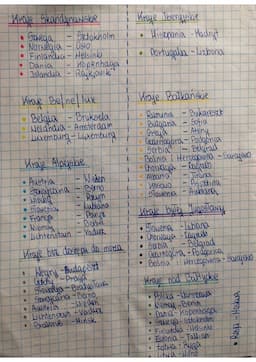 Kraje Skandynawskie
Szwecja - Sztokholm
Norwegia - Oslo
Finlandia - Helsinki
Dania - Kopenhaga
Islandia - Reykjavik
Kraje Be/ne/lux
Belgia - Bruksela
Holandia - Amsterdam
Luxemburg - Luxemburg
Kraje Alpejskie
Austria - Wiedeń
Szwajcaria - Berno
Włochy - Rzym
Słowenia - Lublana
Francja - Paryż
Niemcy - Berlin
Lichtenstein - Vaduz
Kraje bez dostępu do morza
Węgry - Budapeszt
Czechy - Praga
Słowacja - Bratysława
Szwajcaria - Berno
Austria - Wiedeń
Lichtenstein - Vaduz
Białoruś - Mińsk
Kraje
Hiszpania - Madryt
Portugalia - Lizbona
Kraje Bałkańskie
Rumunia - Bukareszt
Bułgaria - Sofia
Grecja - Ateny
Czarnogóra - Podgorica
Serbia - Belgrad
Bośnia i Hercegowina - Sarajewo
Chorwacja - Zagrzeb
Albania - Tirana
Kosowo - Prisztina
Kraje byłej Jugosławii
Słowenia - Lublana
Chorwacja - Zagrzeb
Serbia - Belgrad
Czarnogóra - Podgorica
Bośnia i Hercegowina - Sarajewo
Kraje nad Bałtykiem
Polska - Warszawa
Niemcy - Berlin
Dania - Kopenhaga
Szwecja - Sztokholm
Finlandia - Helsinki
Estonia - Tallinn
Łotwa - Ryga
Litwa - Wilno